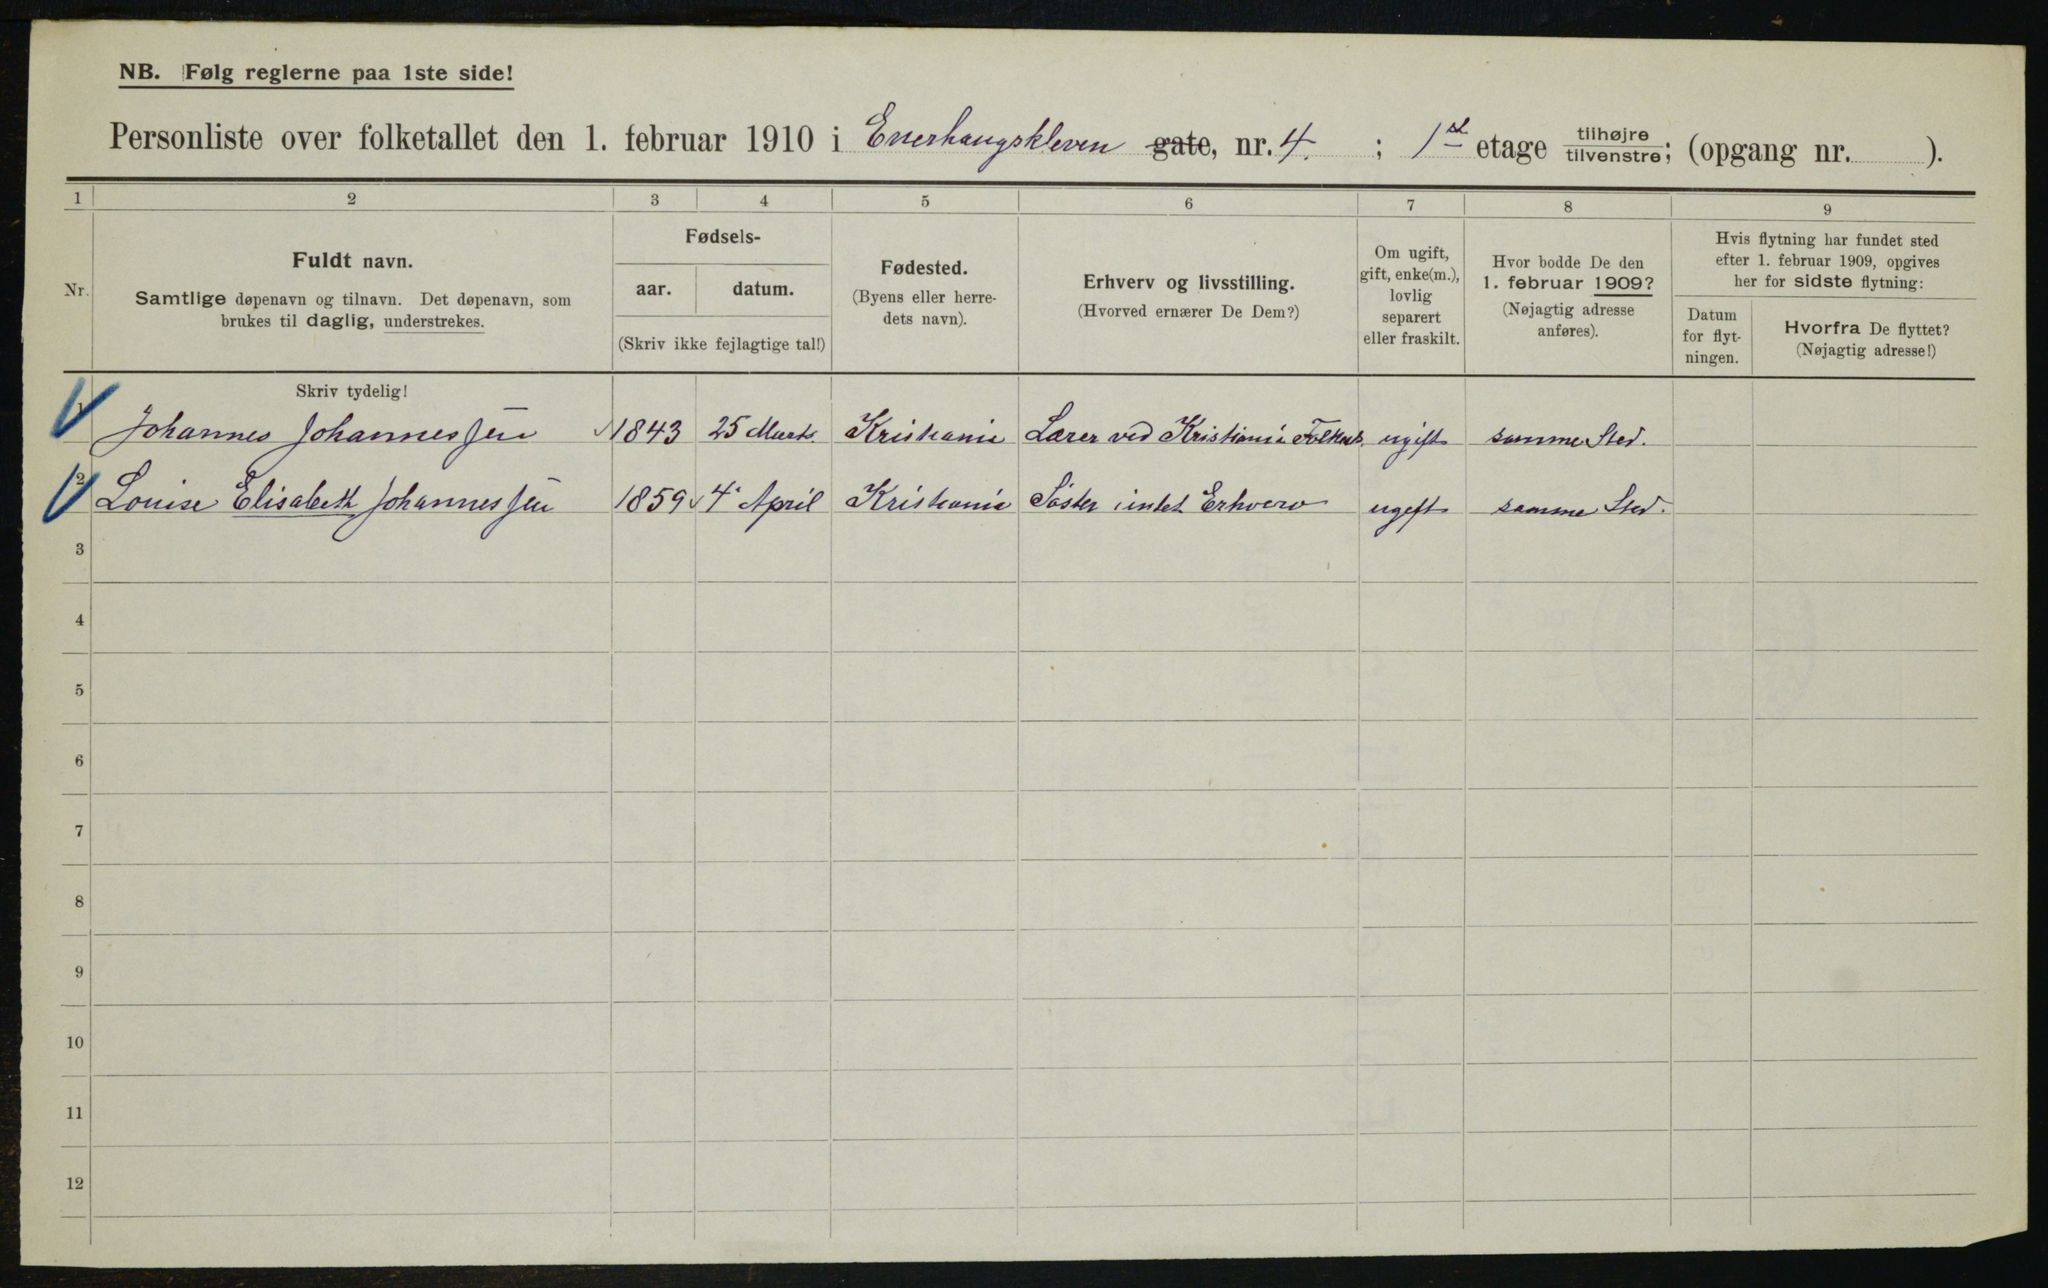 NB. Følg reglerne paa 1ste side!
Personliste over folketallet den 1. februar 1910 i Enerhaugskleven gate, nr. 4. ; 1st etage tilhøjre tilvenstre; (opgang nr. ).
1 2 3 4 5 6 7 8 9
Nr.
Fuldt navn.
Samtlige døpenavn og tilnavn. Det døpenavn, som
brukes til daglig, understrekes.
Fødsels-
aar. datum.
(Skriv ikke fejlagtige tal!)
Fødested.
(Byens eller herre-
dets navn).
Erhverv og livsstilling.
(Hvorved ernærer De Dem?)
Om ugift,
gift, enke(m.),
lovlig
separert
eller fraskilt.
Hvor bodde De den
1. februar 1909?
(Nøjagtig adresse
anføres).
Hvis flytning har fundet sted
efter 1. februar 1909, opgives
her for sidste flytning:
Datum
for flyt-
ningen.
Hvorfra De flyttet?
(Nøjagtig adresse!)
Skriv tydelig!
1 Johannes Johannessen 1843 25 Marts. Kristiania Lærer ved Kristiania Folkes. ugift samme Sted.
2 Louise Elisabeth Johannessen 1859 4. April Kristiania Søster intet Erhverv ugift samme Sted.
3
4
5
6
7
8
9
10
11
12